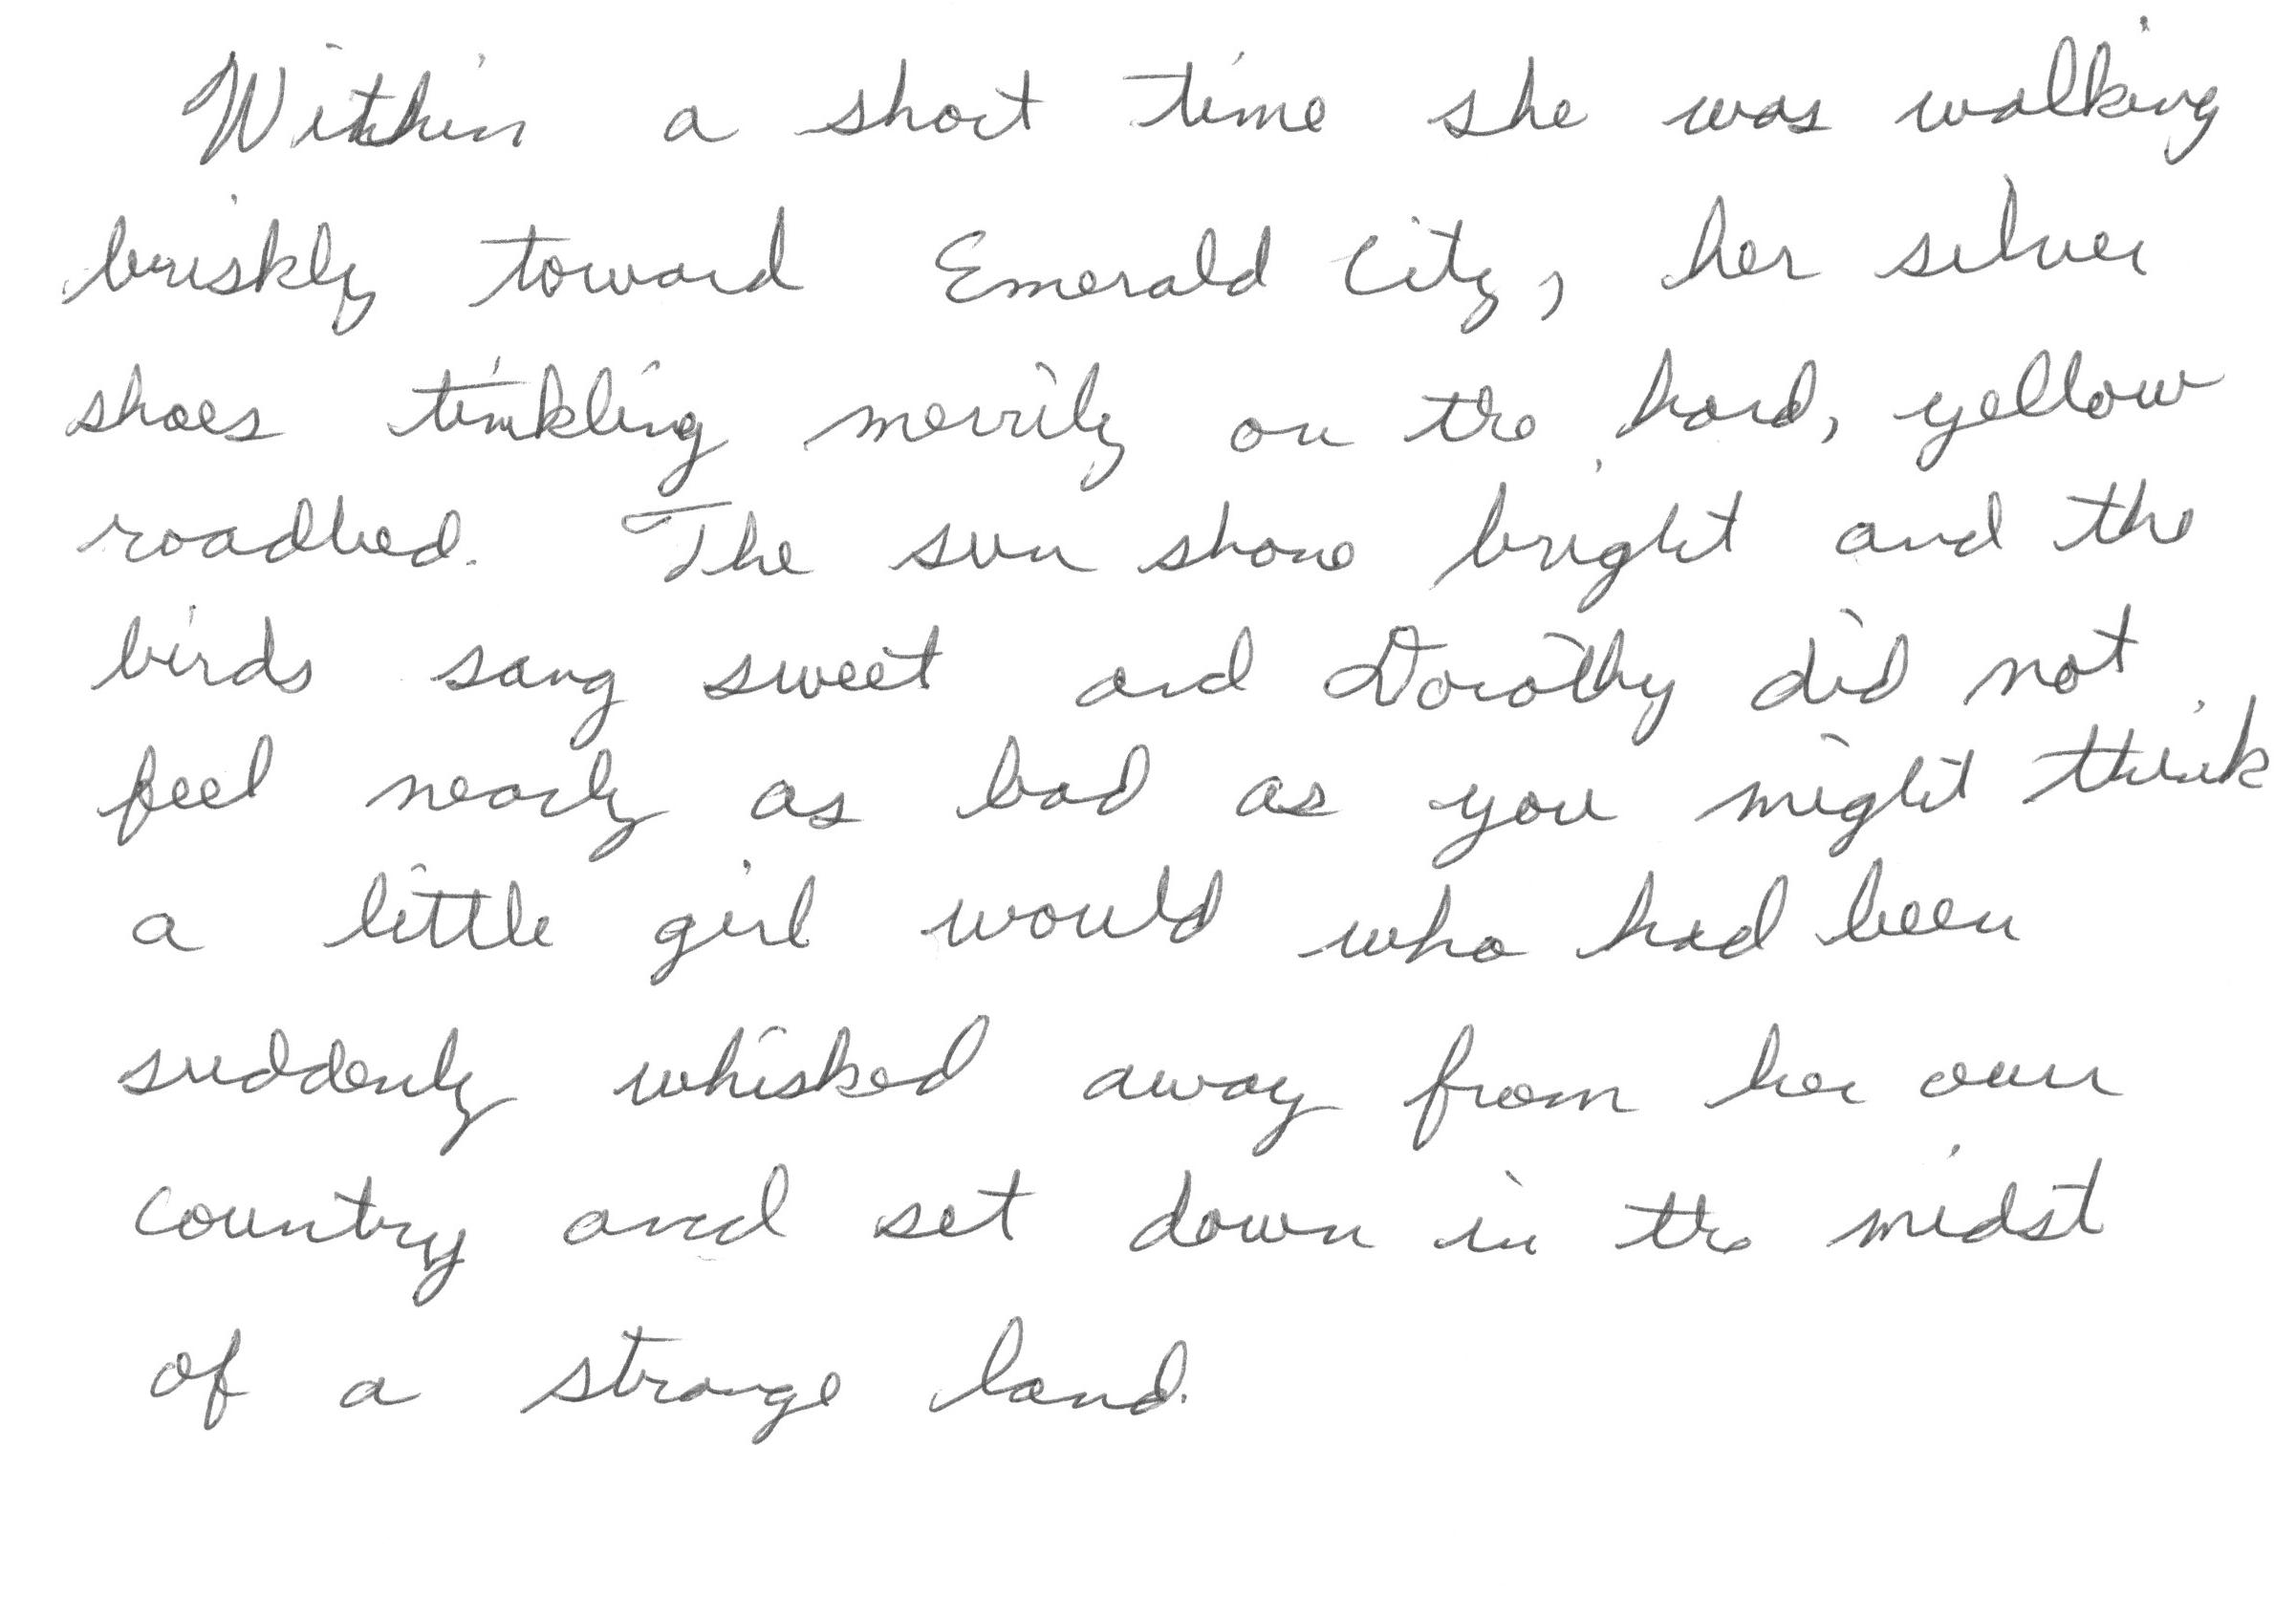 Within a short time she was walking
briskly toward Emerald City, her silver
shoes tinkling merrily on the hard, yellow
roadbed. The sun shone bright and the
birds sang sweet and Dorothy did not
feel nearly as bad as you might think
a little girl would who had been
suddenly whisked away from her own
country and set down in the midst
of a strange land.